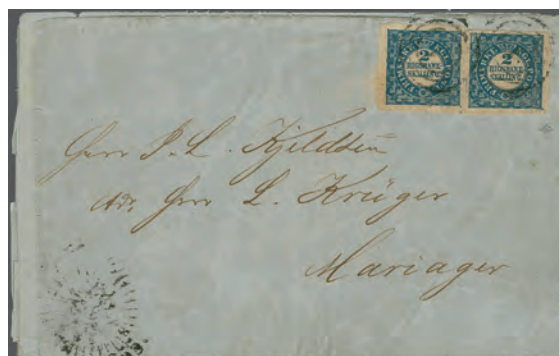 2
RIGSBANK
SKILLING
2
RIGSBANK
SKILLING
Herr P. L. Kjeldsen
Adr. Herr L. Krüger
Mariager